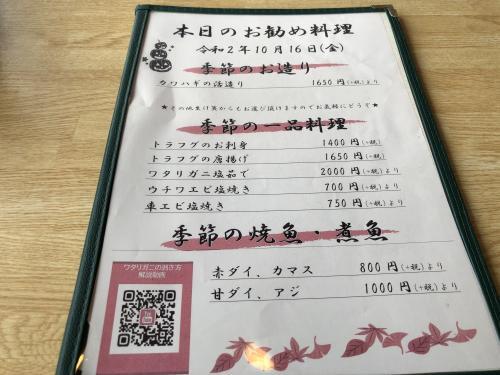 本日のお勧め料理
令和2年10月16日(金)
季節のお造り
カワハギの活造り 1650円(+税)より
★その他生け簀からもお選び頂けますのでお気軽にどうぞ★
季節の一品料理
トラフグのお刺身 1400円(+税)
トラフグの唐揚げ 1650円(+税)
ワタリガニ塩茹で 2000円(+税)より
ウチワエビ塩焼き 700円(+税)より
車エビ塩焼き 750円(+税)より
季節の焼魚・煮魚
赤ダイ、カマス 800円(+税)より
甘ダイ、アジ 1000円(+税)より
ワタリガニの剥き方
解説動画